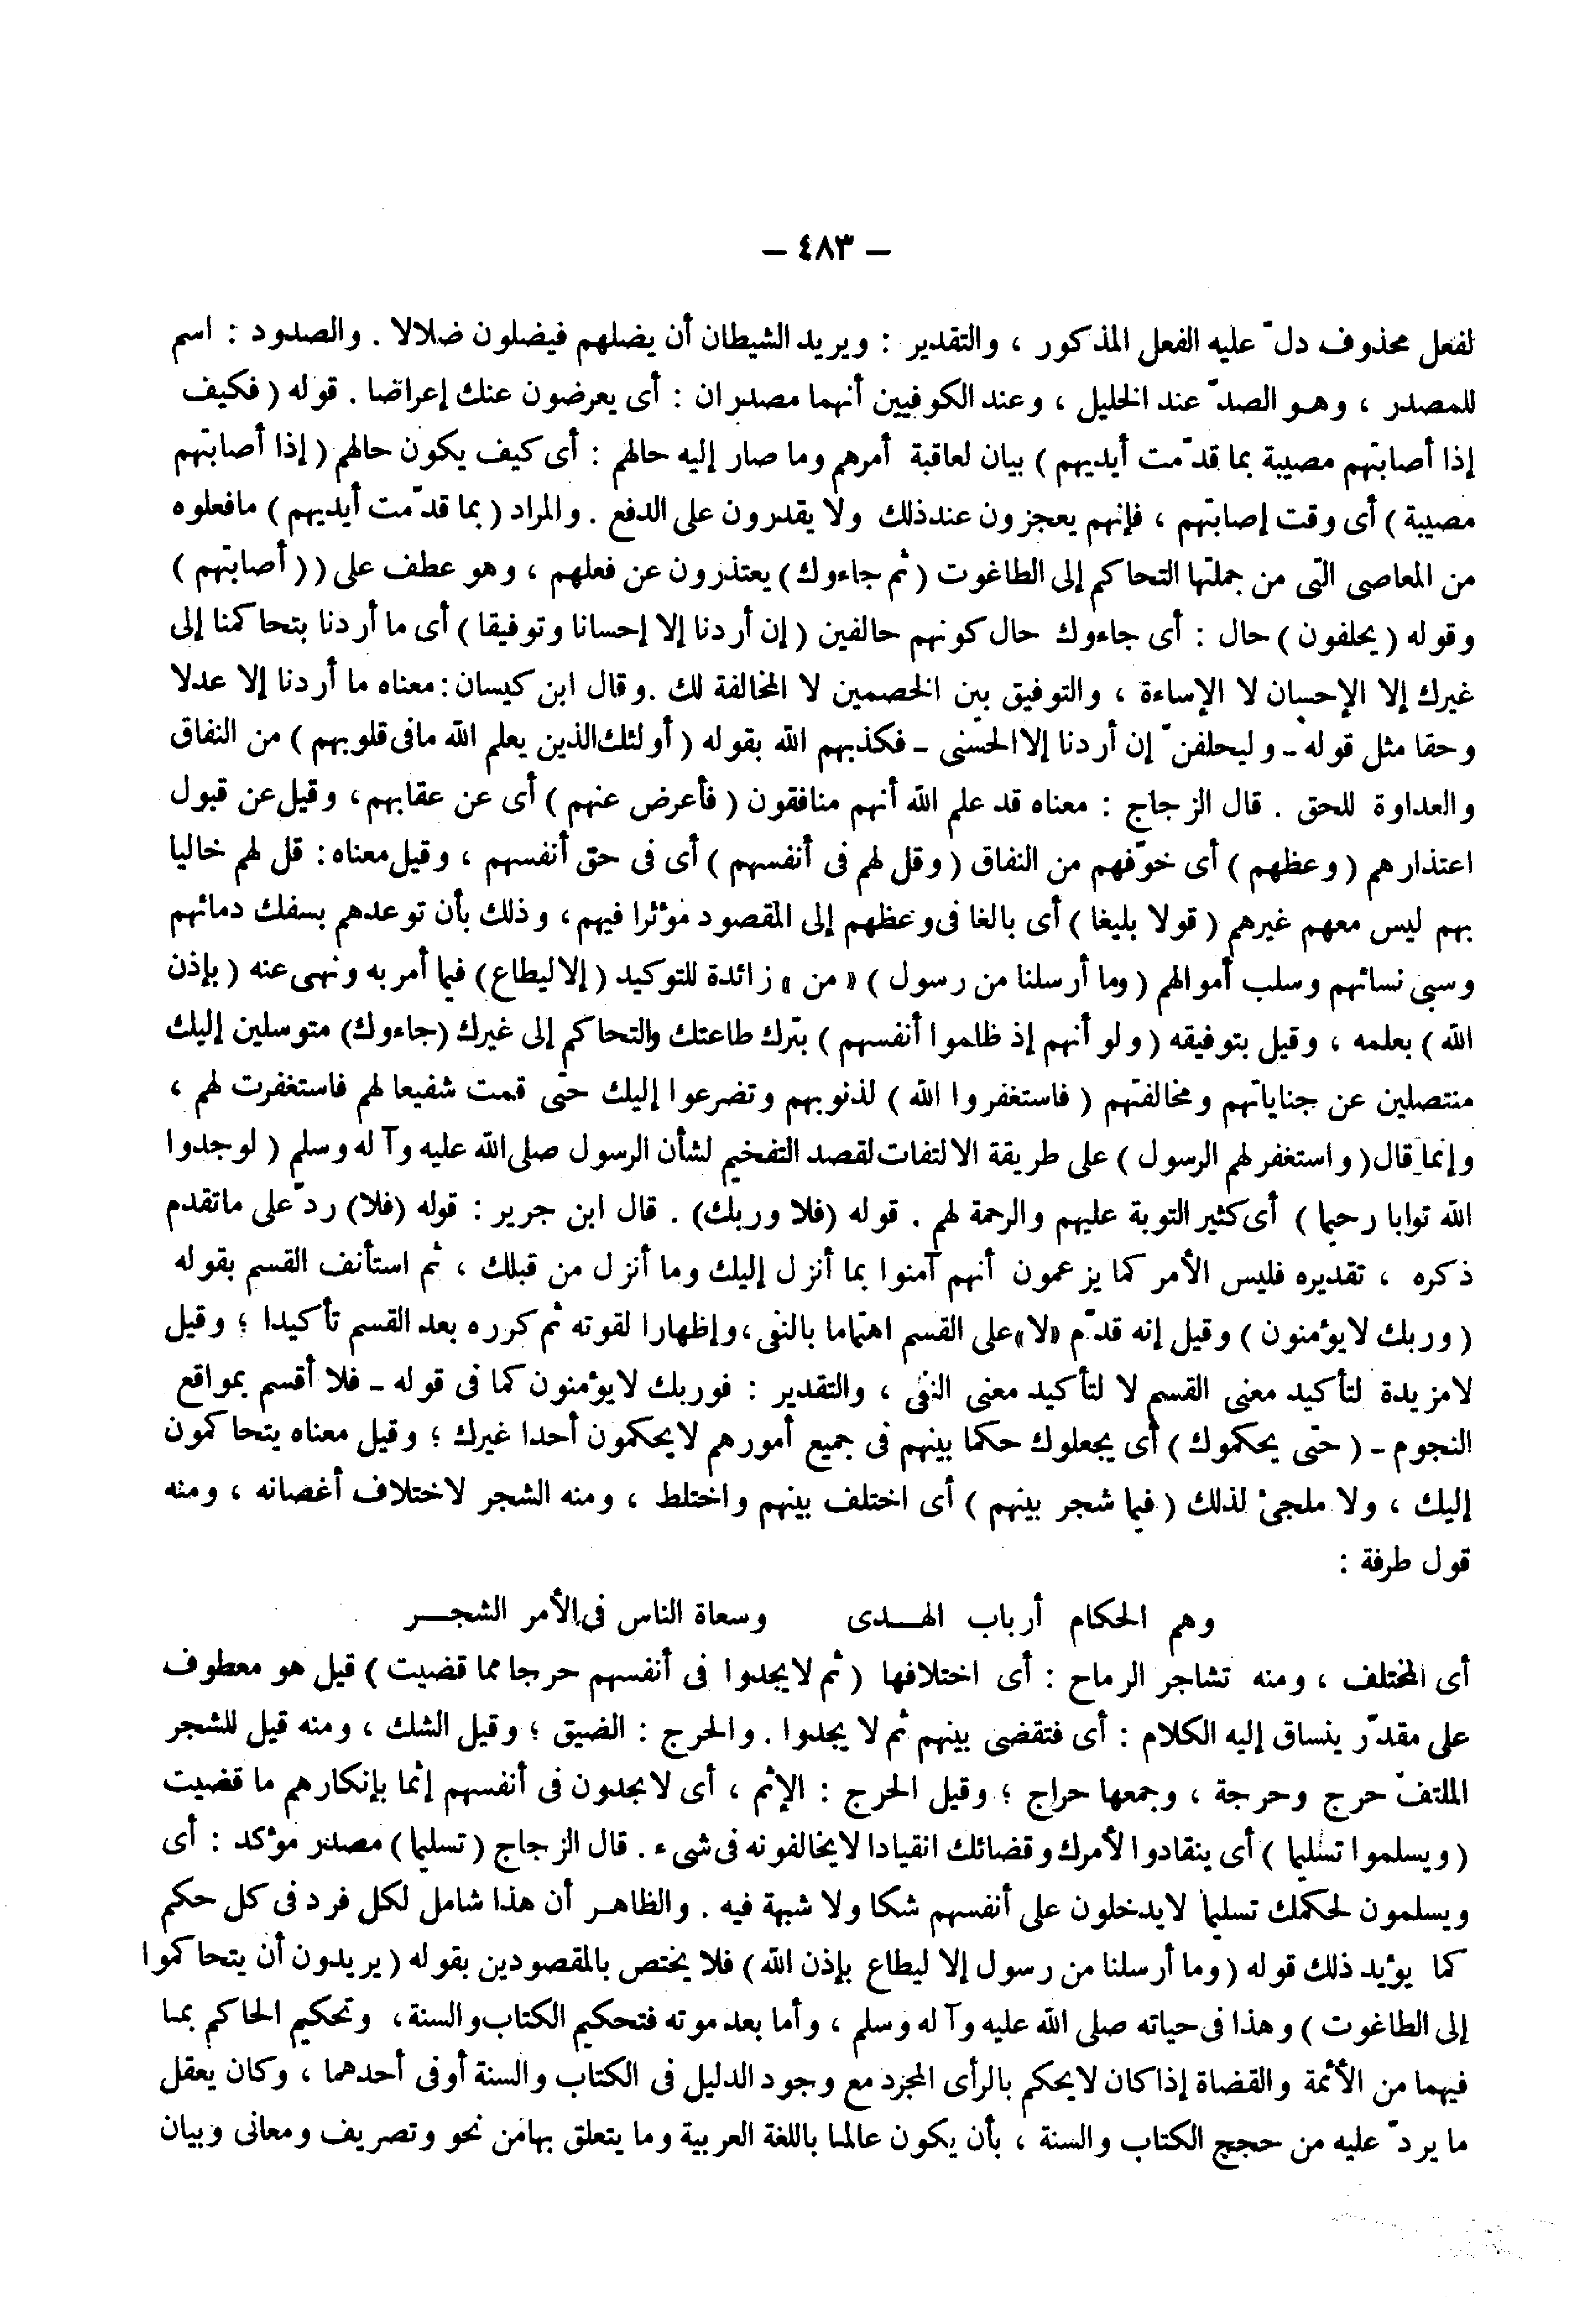 – ٤٨٣ –
لفعل محذوف دلّ عليه الفعل المذكور ، والتقدير : ويريد الشيطان أن يضلهم فيضلون ضلالا . والصدود : اسم
للمصدر ، وهو الصدّ عند الخليل ، وعند الكوفيين أنهما مصدران : أى يعرضون عنك إعراضا . قوله ( فكيف
إذا أصابتهم مصيبة بما قدّمت أيديهم ) بيان لعاقبة أمرهم وما صار إليه حالهم : أى كيف يكون حالهم ( إذا أصابتهم
مصيبة ) أى وقت إصابتهم ، فإنهم يعجزون عند ذلك ولا يقدرون على الدفع . والمراد ( بما قدّمت أيديهم ) مافعلوه
من المعاصى التى من جملتها التحاكم إلى الطاغوت ( ثم جاءوك ) يعتذرون عن فعلهم ، وهو عطف على ( ( أصابتهم )
وقوله ( يحلفون ) حال : أى جاءوك حال كونهم حالفين ( إن أردنا إلا إحسانا وتوفيقا ) أى ما أردنا بتحاكمنا إلى
غيرك إلا الإحسان لا الإساءة ، والتوفيق بين الخصمين لا المخالفة لك . وقال ابن كيسان : معناه ما أردنا إلا عدلا
وحقا مثل قوله - وليحلفنّ إن أردنا إلا الحسنى - فكذبهم الله بقوله ( أولئك الذين يعلم الله مافى قلوبهم ) من النفاق
والعداوة للحق . قال الزجاج : معناه قد علم الله أنهم منافقون ( فأعرض عنهم ) أى عن عقابهم ، وقيل عن قبول
اعتذارهم ( وعظهم ) أى خوّفهم من النفاق ( وقل لهم فى أنفسهم ) أى فى حق أنفسهم ، وقيل معناه : قل لهم خاليا
بهم ليس معهم غيرهم ( قولا بليغا ) أى بالغا فى وعظهم إلى المقصود مؤثرا فيهم ، وذلك بأن توعدهم بسفك دمائهم
وسبى نسائهم وسلب أموالهم ( وما أرسلنا من رسول ) « من » زائدة للتوكيد ( إلا ليطاع ) فيما أمر به ونهى عنه ( بإذن
الله ) بعلمه ، وقيل بتوفيقه ( ولو أنهم إذ ظلموا أنفسهم ) بترك طاعتك والتحاكم إلى غيرك ( جاءوك ) متوسلين إليك
متنصلين عن جناياتهم ومخالفتهم ( فاستغفروا الله ) لذنوبهم وتضرعوا إليك حتى قمت شفيعا لهم فاستغفرت لهم ،
وإنما قال ( واستغفر لهم الرسول ) على طريقة الالتفات لقصد التفخيم لشأن الرسول صلى الله عليه وآله وسلم ( لوجدوا
الله توابا رحيما ) أى كثير التوبة عليهم والرحمة لهم . قوله ( فلا وربك ) . قال ابن جرير : قوله ( فلا ) ردّ على ماتقدم
ذكره ، تقديره فليس الأمر كما يزعمون أنهم آمنوا بما أنزل إليك وما أنزل من قبلك ، ثم استأنف القسم بقوله
( وربك لا يؤمنون ) وقيل إنه قدّم « لا » على القسم اهتماما بالنفى ، وإظهارا لقوته ثم كرره بعد القسم تأكيدا ؛ وقيل
لا مزيدة لتأكيد معنى القسم لا لتأكيد معنى النفى ، والتقدير : فوربك لا يؤمنون كما فى قوله - فلا أقسم بمواقع
النجوم - ( حتى يحكموك ) أى يجعلوك حكما بينهم فى جميع أمورهم لا يحكمون أحدا غيرك ؛ وقيل معناه يتحاكمون
إليك ، ولا ملجئ لذلك ( فيما شجر بينهم ) أى اختلف بينهم واختلط ، ومنه الشجر لاختلاف أغصانه ، ومنه
قول طرفة :
وهم الحكام أرباب الهـــدى وسعاة الناس فى الأمر الشجـــر
أى المختلف ، ومنه تشاجر الرماح : أى اختلافها ( ثم لا يجدوا فى أنفسهم حرجا مما قضيت ) قيل هو معطوف
على مقدّر ينساق إليه الكلام : أى فتقضى بينهم ثم لا يجدوا . والحرج : الضيق ؛ وقيل الشك ، ومنه قيل للشجر
الملتفّ حرج وحرجة ، وجمعها حراج ؛ وقيل الحرج : الإثم ، أى لا يجدون فى أنفسهم إثما بإنكارهم ما قضيت
( ويسلموا تسليما ) أى ينقادوا لأمرك وقضائك انقيادا لا يخالفونه فى شىء . قال الزجاج ( تسليما ) مصدر مؤكد : أى
ويسلمون لحكمك تسليما لا يدخلون على أنفسهم شكا ولا شبهة فيه . والظاهر أن هذا شامل لكل فرد فى كل حكم
كما يؤيد ذلك قوله ( وما أرسلنا من رسول إلا ليطاع بإذن الله ) فلا يختص بالمقصودين بقوله ( يريدون أن يتحاكموا
إلى الطاغوت ) وهذا فى حياته صلى الله عليه وآله وسلم ، وأما بعد موته فتحكيم الكتاب والسنة ، وتحكيم الحاكم بما
فيهما من الأئمة والقضاة إذا كان لا يحكم بالرأى المجرد مع وجود الدليل فى الكتاب والسنة أو فى أحدهما ، وكان يعقل
ما يردّ عليه من حجج الكتاب والسنة ، بأن يكون عالما باللغة العربية وما يتعلق بها من نحو وتصريف ومعانى وبيان